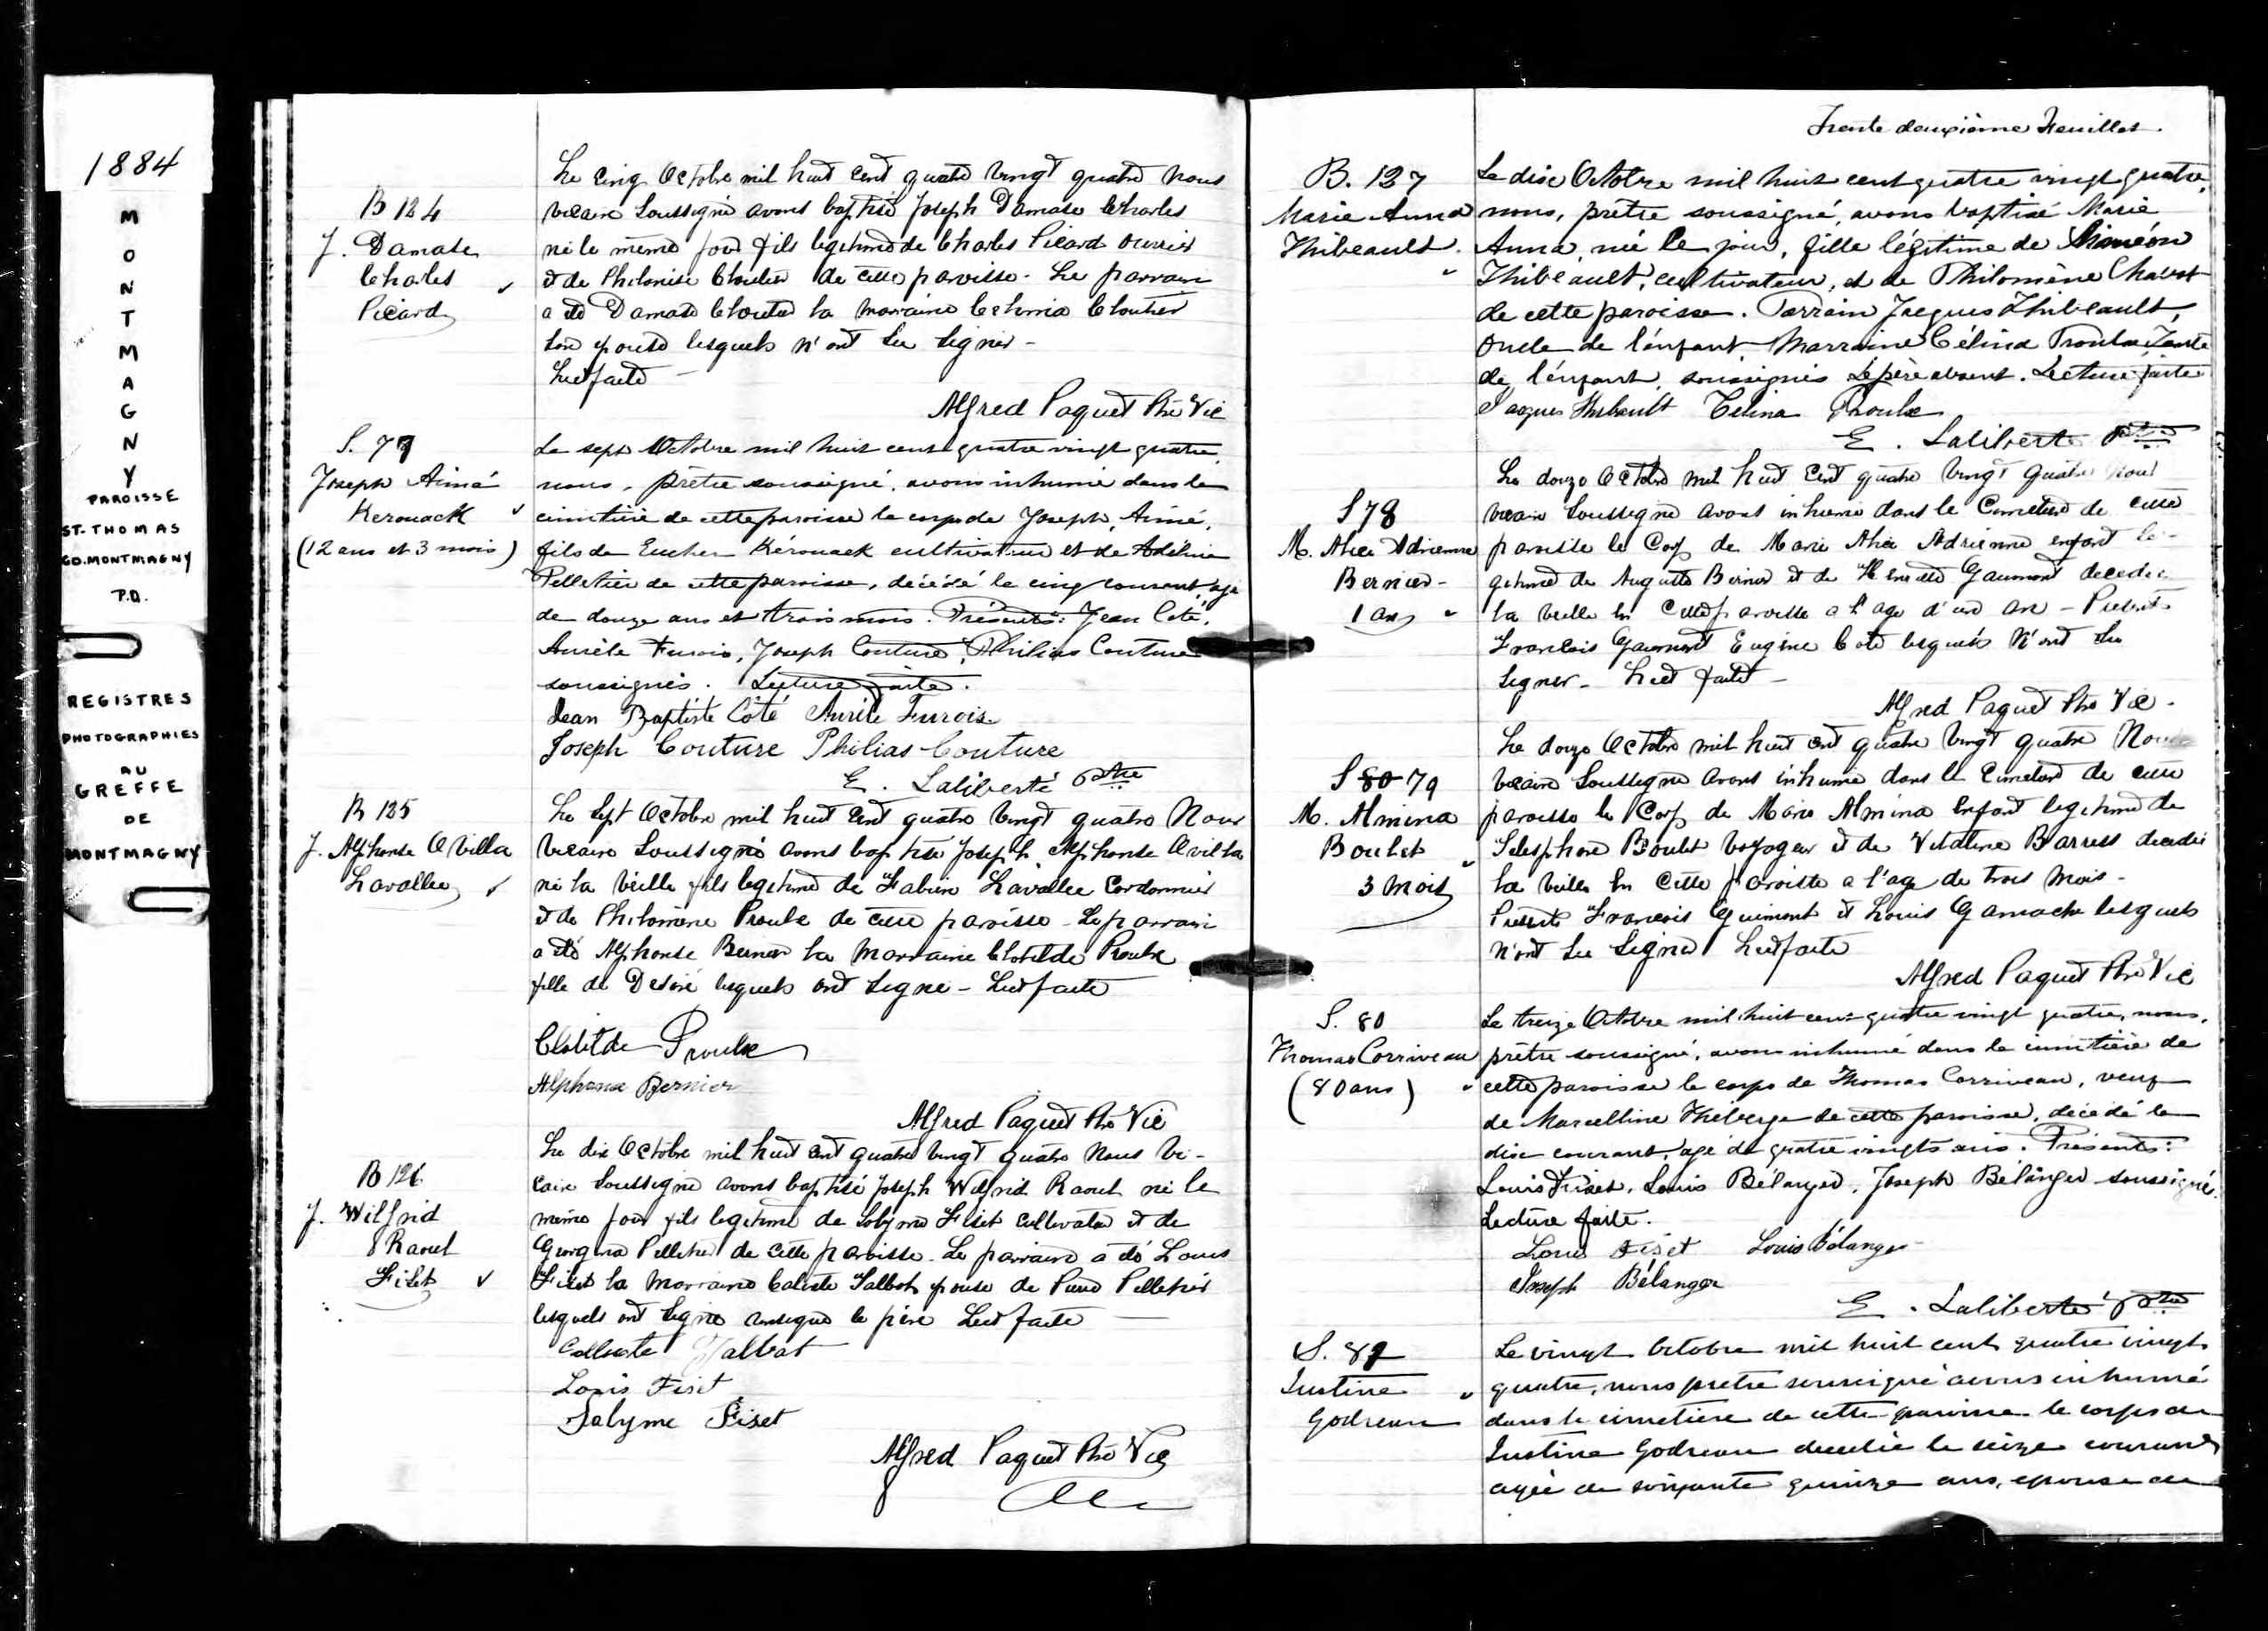 1884
MONTMAGNY
PAROISSE
ST. THOMAS
CO. MONTMAGNY
P.Q.
REGISTRES
PHOTOGRAPHIES
AU
GREFFE
DE
MONTMAGNY
B 124
J. Damase
Charles
Picard
Le cinq Octobre mil huit cent quatre vingt quatre Nous
vicaire soussigné avons baptisé Joseph Damase Charles
né le même jour fils legitime de Charles Picard ouvrier
et de Philomise Cloutier de cette paroisse. Le parrain
a été Damase Cloutier la marraine
son épouse lesquels n'ont su signer -
Lect faite -
Alfred Paquet Ptre Vic
S. 77
Joseph Aimé
Kerouack
(12 ans et 3 mois)
Le sept Octobre mil huit cent quatre vingt quatre,
nous, prêtre soussigné, avons inhumé dans le
cimetière de cette paroisse le corps de Joseph, Aimé,
fils de Eucher Kérouack cultivateur et de Adéline
Pelletier de cette paroisse, décédé le cinq courant, age
de douze ans et trois mois. Présents: Jean Coté,
Aurèle Furois, Joseph Couture, Philias Couture
soussignés. Lecture faite.
Jean Baptiste Côté Aurèle Furois
Joseph Couture Philias Couture
E. Laliberté Ptre
B 125
J. Alphonse Avilla
Lavallee
Le Sept Octobre mil huit cent quatre vingt quatre Nous
Vicaire Soussigné avons baptisé Joseph Alphonse Avilla
né la veille fils legitime de Fabien Lavallee Cordonnier
et de Philomène Proulx de cette paroisse - Le parrain
a été Alphonse Bernier la marraine Clotilde Proulx
fille de Désiré lesquels ont signé - Lect faite
Clotilde Proulx
Alphonse Bernier
Alfred Paquet Ptre Vic
B 126
J. Wilfrid
Raoul
Fiset
Le dix Octobre mil huit cent quatre vingt quatre Nous Vi-
caire Soussigné avons baptisé Joseph Wilfrid Raoul né le
même jour fils legitime de Solyme Fiset Cultivateur et de
Georgina Pelletier de cette paroisse. Le parrain a été Louis
Fiset la marraine Celeste Talbot épouse de Pierre Pelletier
lesquels ont signé le père Lect faite
Celeste Talbot
Louis Fiset
Salyme Fiset
Alfred Paquet Ptre Vic
Trente deuxième Feuillet.
B. 127
Marie Anna
Thibeault.
Le dix Octobre mil huit cent quatre vingt quatre,
nous, prêtre soussigné, avons baptisé Marie
Anna, né le jour, fille légitime de Siméon
Thibeault, cultivateur, et de Philomène Chabot
de cette paroisse. Parrain Jacques Thibeault,
Oncle de l'enfant, Marraine Célina Proulx Tante
de l'enfant, soussignés Le père absent. Lecture faite
Jacques Thibault Celina Proulx
E. Laliberté Ptre
S 78
M. Alice Adrienne
Bernier -
1 an
Le douze Octobre mil huit cent quatre vingt quatre Nous
vicaire Soussigné avons inhumé dans le Cimetiere de cette
paroisse le Corp de Marie Alice Adrienne enfant le-
gitime de Auguste Bernier et de Gaumont decedée
la veille en cette paroisse a l'age d'un an - Présents
Francois Gaumont Eugène Coté lesquels n'ont su
Signer - Lect faite -
Alfred Paquet Ptre Vic -
S 80 79
M. Almina
Boulet
3 Mois
Le douze Octobre mil huit cent quatre vingt quatre Nous
vicaire Soussigné avons inhumé dans le Cimetiere de cette
paroisse le Corp de Marie Almina enfant legitime de
Telesphore Boulet voyageur et de decedée
la veille en cette paroisse a l'age de trois mois -
Présents Francois Guimont et Louis Gamache lesquels
n'ont su signer Lect faite
Alfred Paquet Ptre Vic
S. 80
Thomas Corriveau
(80 ans)
Le treize Octobre mil huit cent quatre vingt quatre, nous,
prêtre soussigné, avons inhumé dans le cimetière de
cette paroisse le corps de Thomas Corriveau, veuf
de Marcelline Théberge de cette paroisse, décédé le
dix courant, agé de quatre vingts ans. Présents:
Louis Fiset, Louis Bélanger, Joseph Bélanger soussignés.
Lecture faite.
Louis Fiset Louis Bélanger
Joseph Bélanger
E. Laliberté Ptre
S. 81
Justine
Godreau
Le vingt Octobre mil huit cent quatre vingt
quatre, nous pretre soussigné avons inhumé
dans le cimetiere de cette paroisse le corps de
Justine Godreau decedée le seize courant
agée de soixante quinze ans, epouse de